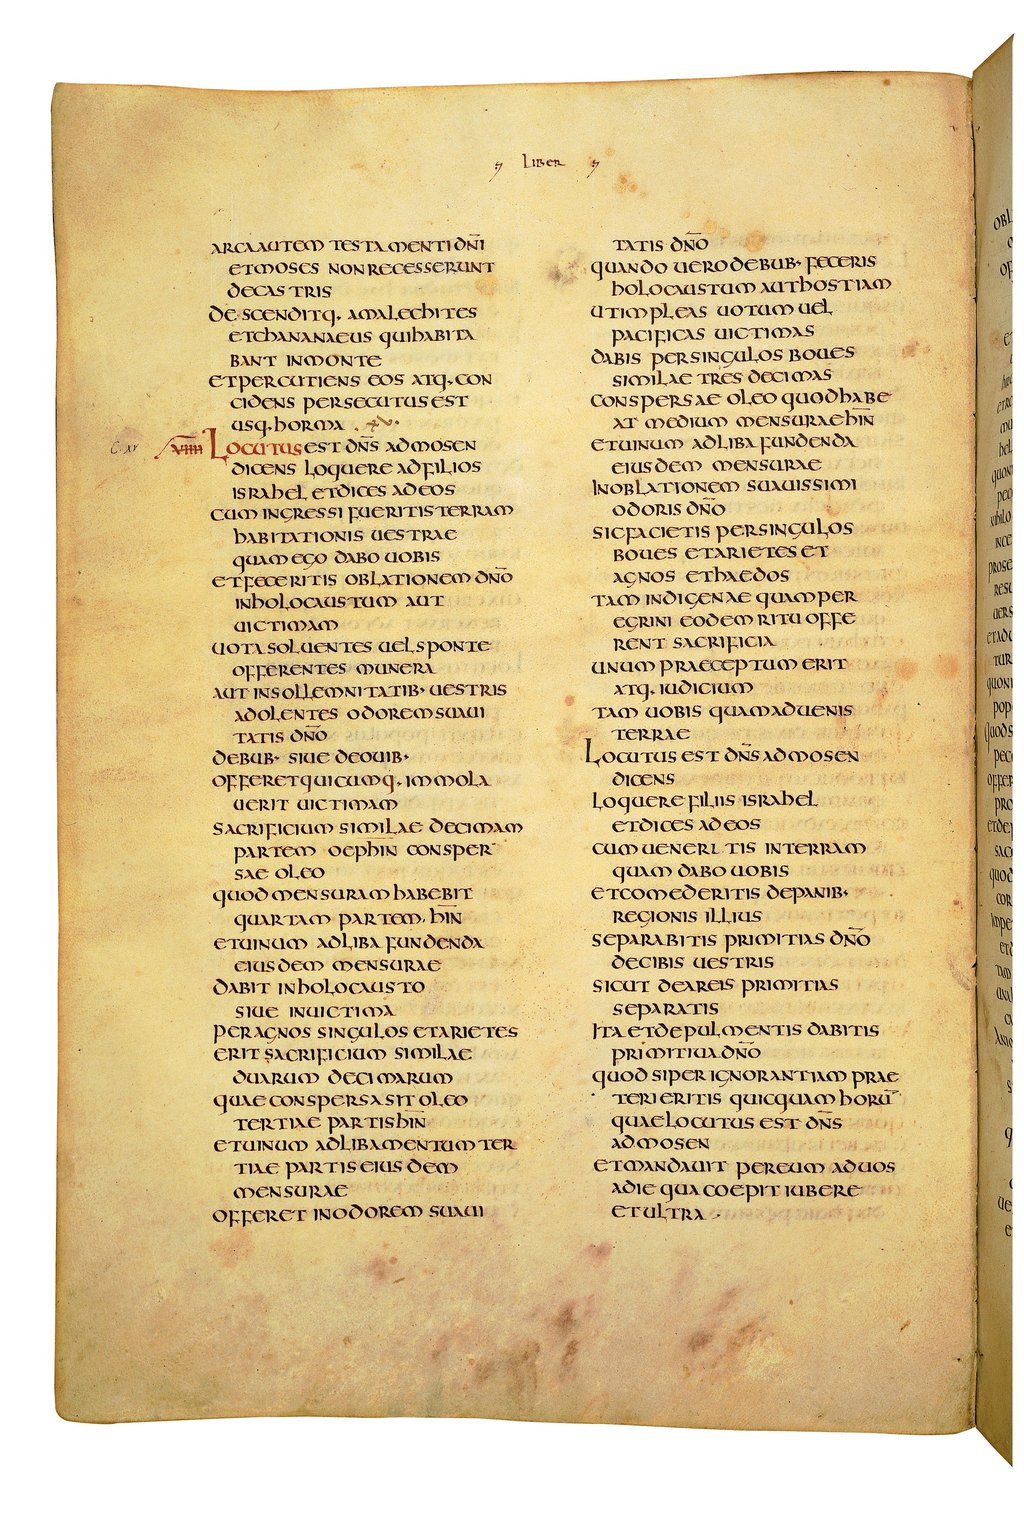 Liber
ARCA AUTEM TESTAMENTI DN̄I
ET MOSES NON RECESSERUNT
DE CASTRIS
DESCENDITQ· AMALECHITES
ET CHANANAEUS QUI HABITA
BANT IN MONTE
ET PERCUTIENS EOS ATQ· CON
CIDENS PERSECUTUS EST
USQ· HORMA
C· XV XVIIII LOCUTUS EST DN̄S AD MOSEN
DICENS LOQUERE AD FILIOS
ISRAHEL ET DICES AD EOS
CUM INGRESSI FUERITIS TERRAM
HABITATIONIS UESTRAE
QUAM EGO DABO UOBIS
ET FECERITIS OBLATIONEM DN̄O
IN HOLOCAUSTUM AUT
UICTIMAM
UOTA SOLUENTES UEL SPONTE
OFFERENTES MUNERA
AUT IN SOLLEMNITATIB· UESTRIS
ADOLENTES ODOREM SUAUI
TATIS DN̄O
DE BUB· SIUE DE OUIB·
OFFERET QUICUMQ· IMMOLA
UERIT UICTIMAM
SACRIFICIUM SIMILAE DECIMAM
PARTEM OEPHIN CONSPER
SAE OLEO
QUOD MENSURAM HABEBIT
QUARTAM PARTEM· HIN
ET UINUM AD LIBA FUNDENDA
EIUSDEM MENSURAE
DABIT IN HOLOCAUSTO
SIUE IN UICTIMA
PER AGNOS SINGULOS ET ARIETES
ERIT SACRIFICIUM SIMILAE
DUARUM DECIMARUM
QUAE CONSPERSA SIT OLEO
TERTIAE PARTIS HIN
ET UINUM AD LIBAMENTUM TER
TIAE PARTIS EIUSDEM
MENSURAE
OFFERET IN ODOREM SUAUI
TATIS DN̄O
QUANDO UERO DE BUB· FECERIS
HOLOCAUSTUM AUT HOSTIAM
UT IMPLEAS UOTUM UEL
PACIFICAS UICTIMAS
DABIS PER SINGULOS BOUES
SIMILAE TRES DECIMAS
CONSPERSAE OLEO QUOD HABE
AT MEDIUM MENSURAE HIN
ET UINUM AD LIBA FUNDENDA
EIUSDEM MENSURAE
IN OBLATIONEM SUAUISSIMI
ODORIS DN̄O
SIC FACIETIS PER SINGULOS
BOUES ET ARIETES ET
AGNOS ET HAEDOS
TAM INDIGENAE QUAM PER
EGRINI EODEM RITU OFFE
RENT SACRIFICIA
UNUM PRAECEPTUM ERIT
ATQ· IUDICIUM
TAM UOBIS QUAM ADUENIS
TERRAE
LOCUTUS EST DN̄S AD MOSEN
DICENS
LOQUERE FILIIS ISRAHEL
ET DICES AD EOS
CUM UENERITIS IN TERRAM
QUAM DABO UOBIS
ET COMEDERITIS DE PANIB·
REGIONIS ILLIUS
SEPARABITIS PRIMITIAS DN̄O
DE CIBIS UESTRIS
SICUT DE AREIS PRIMITIAS
SEPARATIS
ITA ET DE PULMENTIS DABITIS
PRIMITIUA DN̄O
QUOD SI PER IGNORANTIAM PRAE
TERIERITIS QUICQUAM HORŪ
QUAE LOCUTUS EST DN̄S
AD MOSEN
ET MANDAUIT PER EUM AD UOS
A DIE QUA COEPIT IUBERE
ET ULTRA·